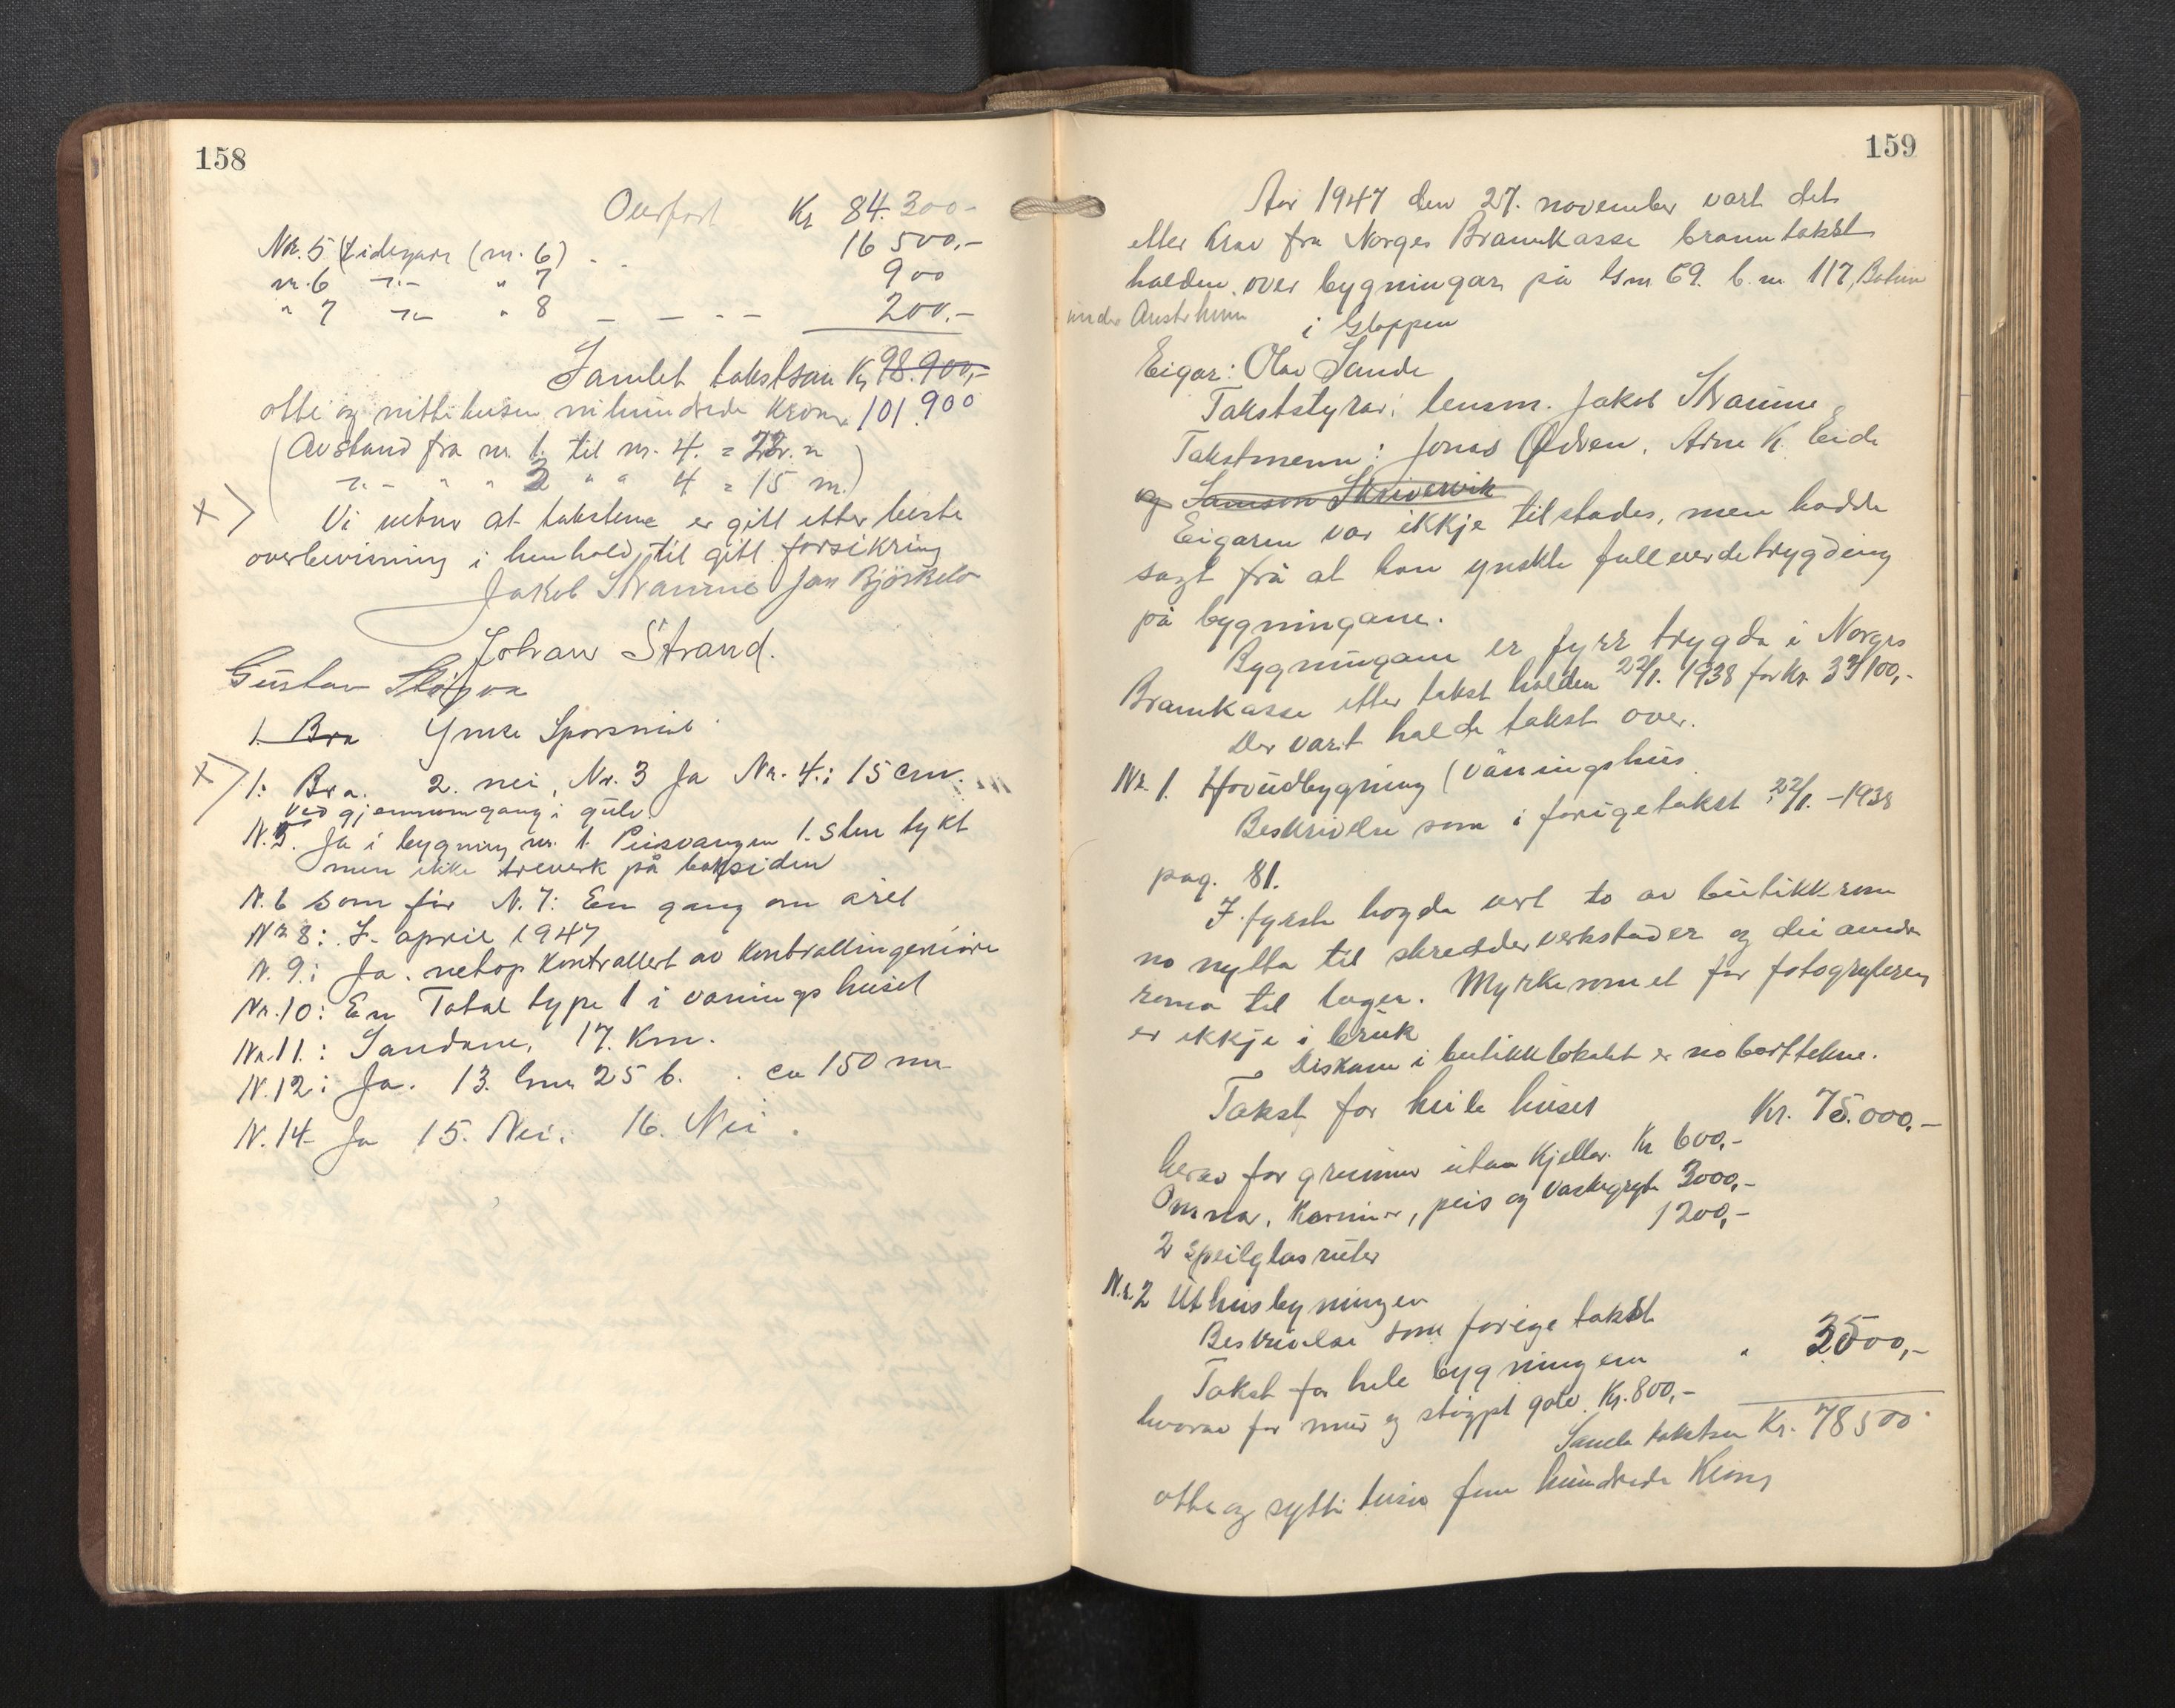 158
Overført Kr 84.300-
Nr. 5 (tidegare (nr. 6) - - 16 500,-
nr. 6 -"- " 7 900
" 7 -"- " 8 - - - - 200.-
Samlet takstsum Kr 98.900,-
otte og nitti tusen nihundrede Kroner 101.900
(Avstand fra nr. 1. til nr. 4. = 22. m
-"- " " 2 " " 4 = 15 m.)
Vi at takstene er gitt etter beste
overbevisning i henhold til gitt forsikring
Jakob Straume Jan Bjørkelo
Johan Strand.
Gustav
1. Bra Ymse Spørsmål
1: Bra. 2. nei, Nr. 3 Ja Nr. 4.: 15 cm.
ved gjennomgang i gulv.
N. 5. Ja i bygning nr. 1. Peisvangen 1. sten tykt
men ikke treverk på baksiden
N. 6 som før N. 7: En gang om året
Nr 8: I april 1947
N. 9.: Ja. netop Kontrollert av Kontrollingeniøre
Nr. 10: En Total type 1 i vaningshuset
Nr. 11.: Sandane, 17. Km.
N. 12: Ja. 13. 25 b. . ca 150 m
N. 14- Ja 15. Nei. 16. Nei.
159
Aar 1947 den 27. november vart det
etter krav fra Norges Brannkasse branntakst
halden over bygningar på Gnr. 69. b. nr. 117,
under Austrheim i Gloppen
Eigar: Olav Sande
Takststyrar: lensm. Jakob Straume
Takstmenn: Jonas Ødven. Arne K. Eide
og Samson Skrivervik
Eigaren var ikkje tilstades, men hadde
sagt frå at han ynskte fullverdetrygding
på bygningane.
Bygningane er fyrr trygda i Norges
Brannkasse etter takst halden 22/1. 1938 for Kr. 100,-
Der vart halde takst over.
Nr. 1. Hovudbygning (våningshus
Beskrivelse som i forige takst 22/1. -1938
pag. 81.
I fyrste høgda vert to av butikkrom
no nytta til skredderverkstader og dei andre
roma til lager. Myrkeromet for fotografering
er ikkje i bruk
Diskane i butikklokalet er no borttekne.
Takst for heile huset Kr. 75.000,-
herav for grunnmur utan Kjellar. Kr 600,-
Omnar, Kaminer, peis og vaskegryte 3000,-
2 speilglasruter 1200,-
Nr. 2 Uthusbygningen
Beskrivelse som forige takst
Takst for hele bygningen " 3500,-
hvorav for mur og støypt golv. Kr. 800,-
Samla takstsum Kr. 78500
otte og sytti tusen fem hundrede Kroner